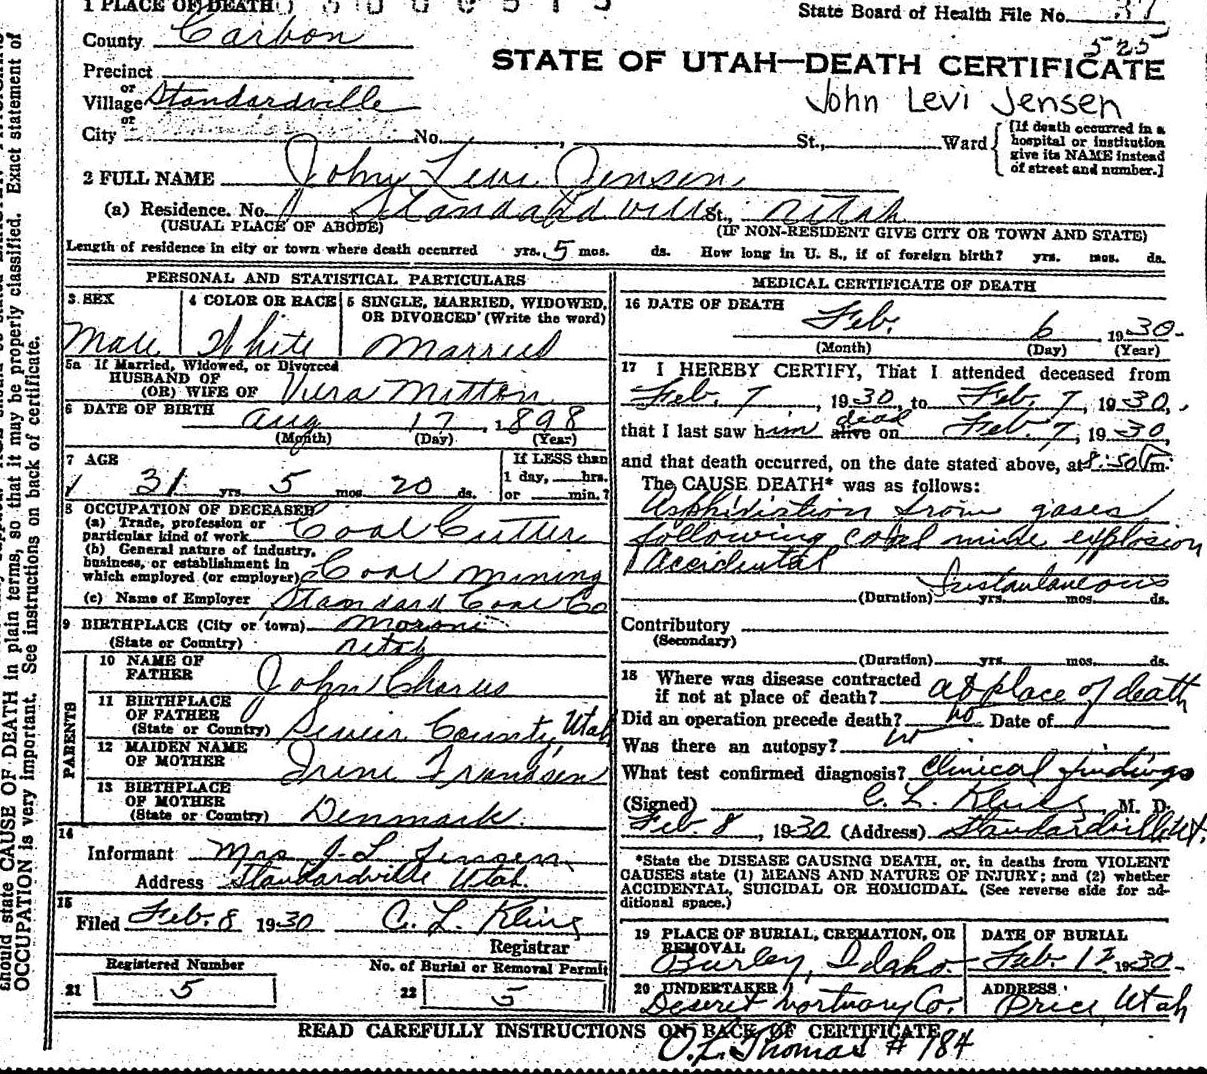 1 PLACE OF DEATH
State Board of Health File No. 37
525
County Carbon
STATE OF UTAH—DEATH CERTIFICATE
Precinct
or
Village Standardville
John Levi Jensen
or
City No. St., Ward
[If death occurred in a
hospital or institution
give its NAME instead
of street and number.]
2 FULL NAME John Levi Jensen
(a) Residence. No. Standardville St., Utah
(USUAL PLACE OF ABODE) (IF NON-RESIDENT GIVE CITY OR TOWN AND STATE)
Length of residence in city or town where death occurred yrs. 5 mos. ds. How long in U. S., if of foreign birth? yrs. mos. ds.
PERSONAL AND STATISTICAL PARTICULARS
3 SEX
Male
4 COLOR OR RACE
White
5 SINGLE, MARRIED, WIDOWED,
OR DIVORCED (Write the word)
Married
5a If Married, Widowed, or Divorced
HUSBAND OF
(OR) WIFE OF Vera Mitton
6 DATE OF BIRTH Aug 17, 1898
(Month) (Day) (Year)
7 AGE
31 yrs. 5 mos. 20 ds.
If LESS than
1 day, hrs.
or min.?
8 OCCUPATION OF DECEASED
(a) Trade, profession or
particular kind of work Coal Cutter
(b) General nature of industry,
business, or establishment in
which employed (or employer) Coal mining
(c) Name of Employer Standard Coal Co
9 BIRTHPLACE (City or town) Moroni
(State or Country) Utah
PARENTS
10 NAME OF
FATHER John Charus
11 BIRTHPLACE
OF FATHER
(State or Country) Sevier County, Utah
12 MAIDEN NAME
OF MOTHER Irine Frandsen
13 BIRTHPLACE
OF MOTHER
(State or Country) Denmark.
14
Informant Mrs J-L Jensen
Address Standardville Utah.
15
Filed Feb. 8 1930 C. L. Kling
Registrar
Registered Number
21 5
No. of Burial or Removal Permit
22 5
MEDICAL CERTIFICATE OF DEATH
16 DATE OF DEATH
Feb. 6, 1930-
(Month) (Day) (Year)
17 I HEREBY CERTIFY, That I attended deceased from
Feb. 7, 1930, to Feb. 7, 1930,
dead
that I last saw him alive on Feb. 7, 1930,
and that death occurred, on the date stated above, at 8:50 P m.
The CAUSE DEATH* was as follows:
Asphixiation from gases
following coal mine explosion
Accidental
Instantaneous
(Duration) yrs. mos. ds.
Contributory
(Secondary)
(Duration) yrs. mos. ds.
18 Where was disease contracted
if not at place of death? at place of death
Did an operation precede death? no Date of
Was there an autopsy? no
What test confirmed diagnosis? Clinical findings
(Signed) C. L. Kling M. D.
Feb. 8, 1930 (Address) Standardville Ut.
*State the DISEASE CAUSING DEATH, or, in deaths from VIOLENT
CAUSES state (1) MEANS AND NATURE OF INJURY; and (2) whether
ACCIDENTAL, SUICIDAL OR HOMICIDAL. (See reverse side for ad-
ditional space.)
19 PLACE OF BURIAL, CREMATION, OR
REMOVAL
Burley, Idaho.
DATE OF BURIAL
Feb. 12 1930-
20 UNDERTAKER
Deseret Mortuary Co.
ADDRESS
Price, Utah
READ CAREFULLY INSTRUCTIONS ON BACK OF CERTIFICATE
O. L. Thomas # 184
should state CAUSE OF DEATH in plain terms, so that it may be properly classified. Exact statement of
OCCUPATION is very important. See instructions on back of certificate.